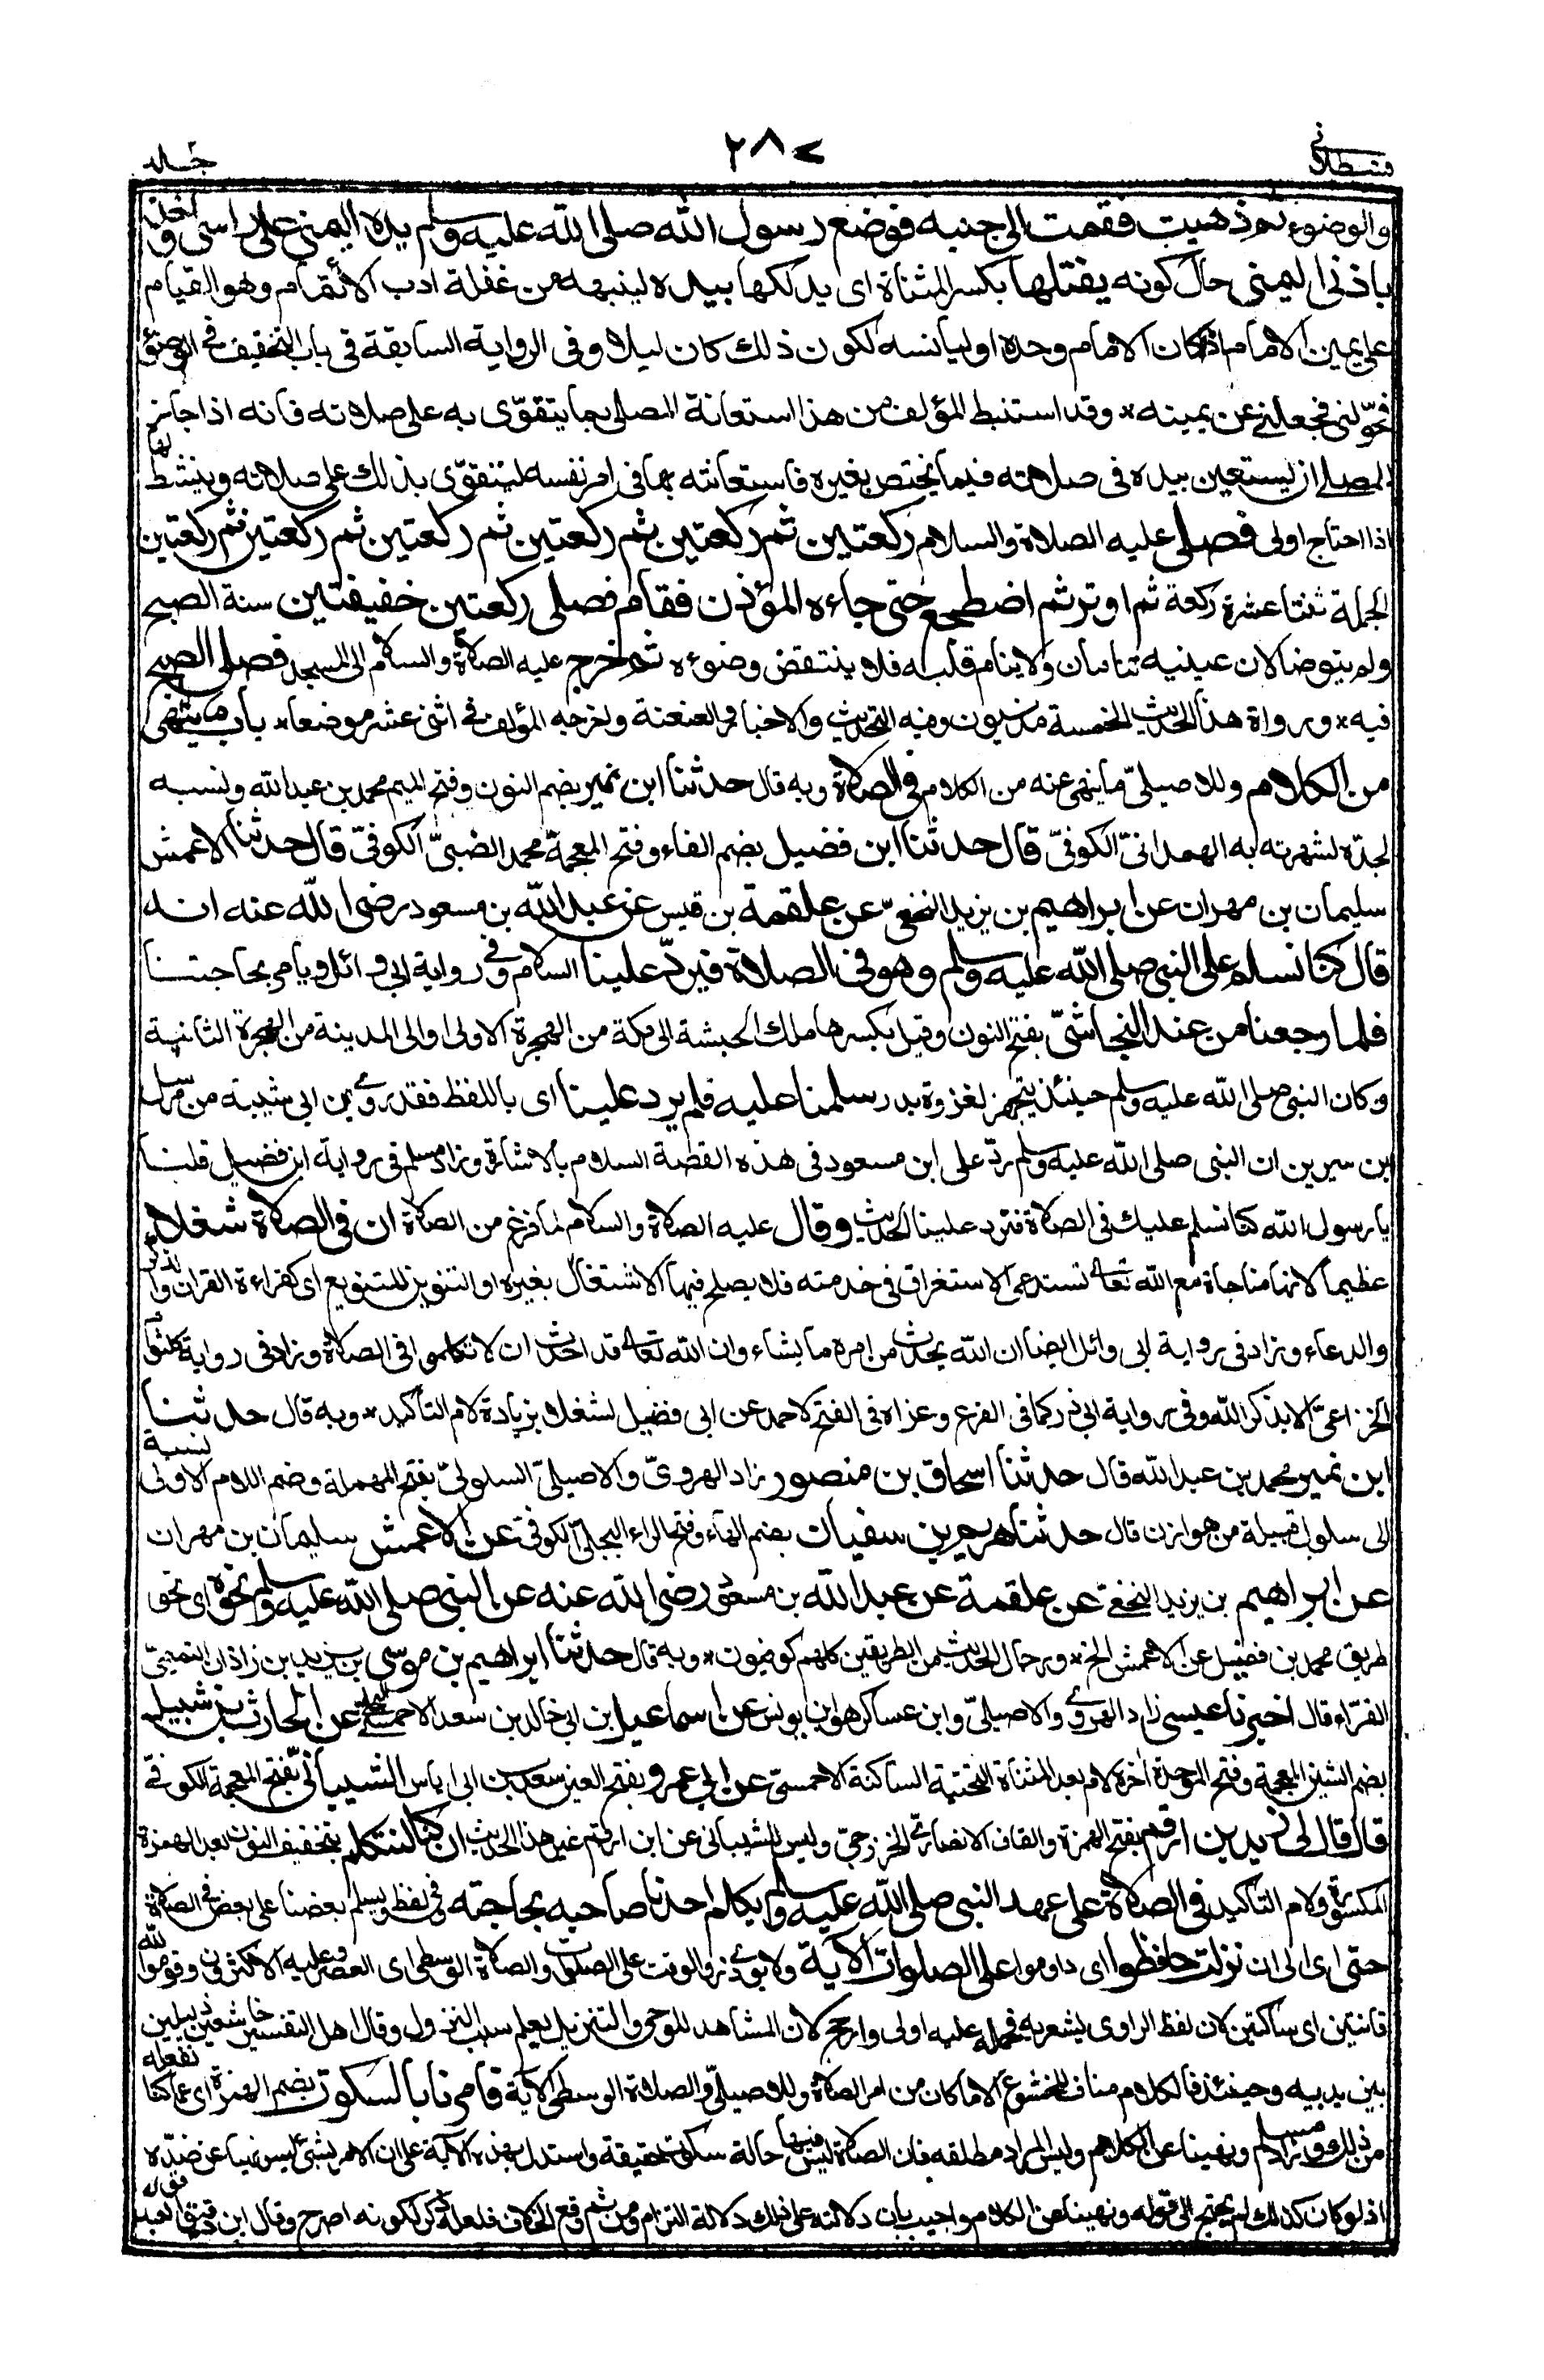 قسطلانى ٢٨٧ جلد
والوضوء ثم ذهبت فقمت الى جنبه فوضع رسول الله صلى الله عليه وسلم يده اليمنى على راسى واخذ
باذنى اليمنى حال كونه يفتلها بكسر المثناة اى يدلكها بيده لينبهه من غفلة ادب الائتمام وهو القيام
على يمين الامام اذا كان الامام وحده او ليانسه لكون ذلك كان ليلا وفى الرواية السابقة فى باب التخفيف فى الوضوء
فحوّلنى فجعلنى عن يمينه * وقد استنبط المؤلف من هذا استعانة المصلى بما يتقوّى به على صلاته فانه اذا جاز
للمصلى ان يستعين بيده فى صلاته فيما يختص بغيره فاستعانته بها فى امر نفسه ليتقوّى بذلك على صلاته وينشط لها
اذا احتاج اولى فصلى عليه الصلاة والسلام ركعتين ثم ركعتين ثم ركعتين ثم ركعتين ثم ركعتين ثم ركعتين
الجملة ثنتا عشرة ركعة ثم اوتر ثم اضطجع حتى جاءه المؤذن فقام فصلى ركعتين خفيفتين سنة الصبح
ولم يتوضا لان عينيه تنامان ولا ينام قلبه فلا ينتقض وضوءه ثم خرج عليه الصلاة والسلام الى المسجد فصلى الصبح
فيه * ورواة هذا الحديث الخمسة مدنيون وفيه التحديث والاخبار والعنعنة واخرجه المؤلف فى اثنى عشر موضعا * باب ما ينهى
من الكلام وللاصيلىّ ما ينهى عنه من الكلام فى الصلاة وبه قال حدثنا ابن نمير بضم النون وفتح الميم محمد بن عبد الله ونسبه
لجدّه لشهرته به الهمدانىّ الكوفىّ قال حدثنا ابن فضيل بضم الفاء وفتح المعجمة محمد الضبىّ الكوفىّ قال حدثنا الاعمش
سليمان بن مهران عن ابراهيم بن يزيد النخعىّ عن علقمة بن قيس عن عبد الله بن مسعود رضى الله عنه انه
قال كنا نسلم على النبى صلى الله عليه وسلم وهو فى الصلاة فيردّ علينا السلام وفى رواية ابى وائل ويامر بحاجتنا
فلما رجعنا من عند النجاشىّ بفتح النون وقيل بكسرها ملك الحبشة الى مكة من الهجرة الاولى او الى المدينة من الهجرة الثانية
وكان النبى صلى الله عليه وسلم حينئذ يتجهز لغزوة بدر سلمنا عليه فلم يرد علينا اى باللفظ فقد روى ابن ابى شيبة من مرسل
ابن سيرين ان النبى صلى الله عليه وسلم ردّ على ابن مسعود فى هذه القصة السلام بالاشارة وزاد مسلم فى رواية ابن فضيل قلنا
يا رسول الله كنا نسلم عليك فى الصلاة فترد علينا الحديث وقال عليه الصلاة والسلام لما فرغ من الصلاة ان فى الصلاة شغلا
عظيما لانها مناجاة مع الله تعالى تستدعى الاستغراق فى خدمته فلا يصلح فيها الاشتغال بغيره او التنوين للتنويع اى كقراءة القران والذكر
والدعاء وزاد فى رواية ابى وائل ايضا ان الله يحدث من امره ما يشاء وان الله تعالى قد احدث ان لا تكلموا فى الصلاة وزاد فى رواية كلثوم
الخزاعىّ الا بذكر الله وفى رواية ابى ذر كما فى الفرع وعزاه فى الفتح لاحمد عن ابى فضيل لشغلا بزيادة لام التأكيد * وبه قال حدثنا
ابن نمير محمد بن عبد الله قال حدثنا اسحاق بن منصور زاد الهروىّ والاصيلىّ السلولىّ بفتح المهملة وضم اللام الاولى نسبة
الى سلول قبيلة من هوازن قال حدثنا هريم بن سفيان بضم الهاء وفتح الراء البجلىّ الكوفىّ عن الاعمش سليمان بن مهران
عن ابراهيم بن يزيد النخعىّ عن علقمة عن عبد الله بن مسعود رضى الله عنه عن النبى صلى الله عليه وسلم نحوه اى نحو
طريق محمد بن فضيل عن الاعمش الخ * ورجال الحديث من الطريقين كلهم كوفيون * وبه قال حدثنا ابراهيم بن موسى بن يزيد بن زاذان التميمىّ
الفرّاء قال اخبرنا عيسى زاد الهروى والاصيلىّ وابن عساكر هو ابن يونس عن اسماعيل بن ابى خالد بن سعد الاحمسى البجلى عن الحارث بن شبيل
بضم الشين المعجمة وفتح الموحدة اخره لام بعد المثناة التحتية الساكنة الاحمسىّ عن ابى عمرو بفتح العين سعد بن ابى اياس الشيبانىّ بفتح المعجمة الكوفى
قال قال لى زيد بن ارقم بفتح الهمزة والقاف الانصارى الخزرجىّ وليس للشيبانى عن ابن ارقم غير هذا الحديث ان كنا لنتكلم بتخفيف النون بعد الهمزة
المكسورة ولام التاكيد فى الصلاة على عهد النبى صلى الله عليه وسلم يكلم احدنا صاحبه بحاجته وفى لفظ ويسلم بعضنا على بعض فى الصلاة
حتى اى الى ان نزلت حافظوا اى داوموا على الصلوات الاية ولابوى ذر والوقت على الصلوات والصلاة الوسطى اى العصر وعليه الاكثرون وقوموا لله
قانتين اى ساكتين لان لفظ الراوى يشعر به فحمله عليه اولى وارجح لان المشاهد للوحى والتنزيل يعلم سبب النزول وقال اهل التفسير خاشعين ذليلين
بين يديه وحينئذ فالكلام مناف للخشوع الا ما كان من امر الصلاة وللاصيلىّ والصلاة الوسطى الاية فامرنا بالسكوت بضم الهمزة اى عما كنا نفعله
من ذلك وزاد مسلم ونهينا عن الكلام وليس المراد مطلقه فان الصلاة ليس فيها حالة سكوت حقيقة واستدل بهذه الاية على ان الامر بشىء ليس نهيا عن ضدّه
اذ لو كان كذلك لم يحتج الى قوله ونهينا عن الكلام واجيب بان دلالته على ذلك دلالة التزام ومن ثم وقع الخلاف فلعله ذكر لكونه اصرح وقال ابن دقيق العيد قوله